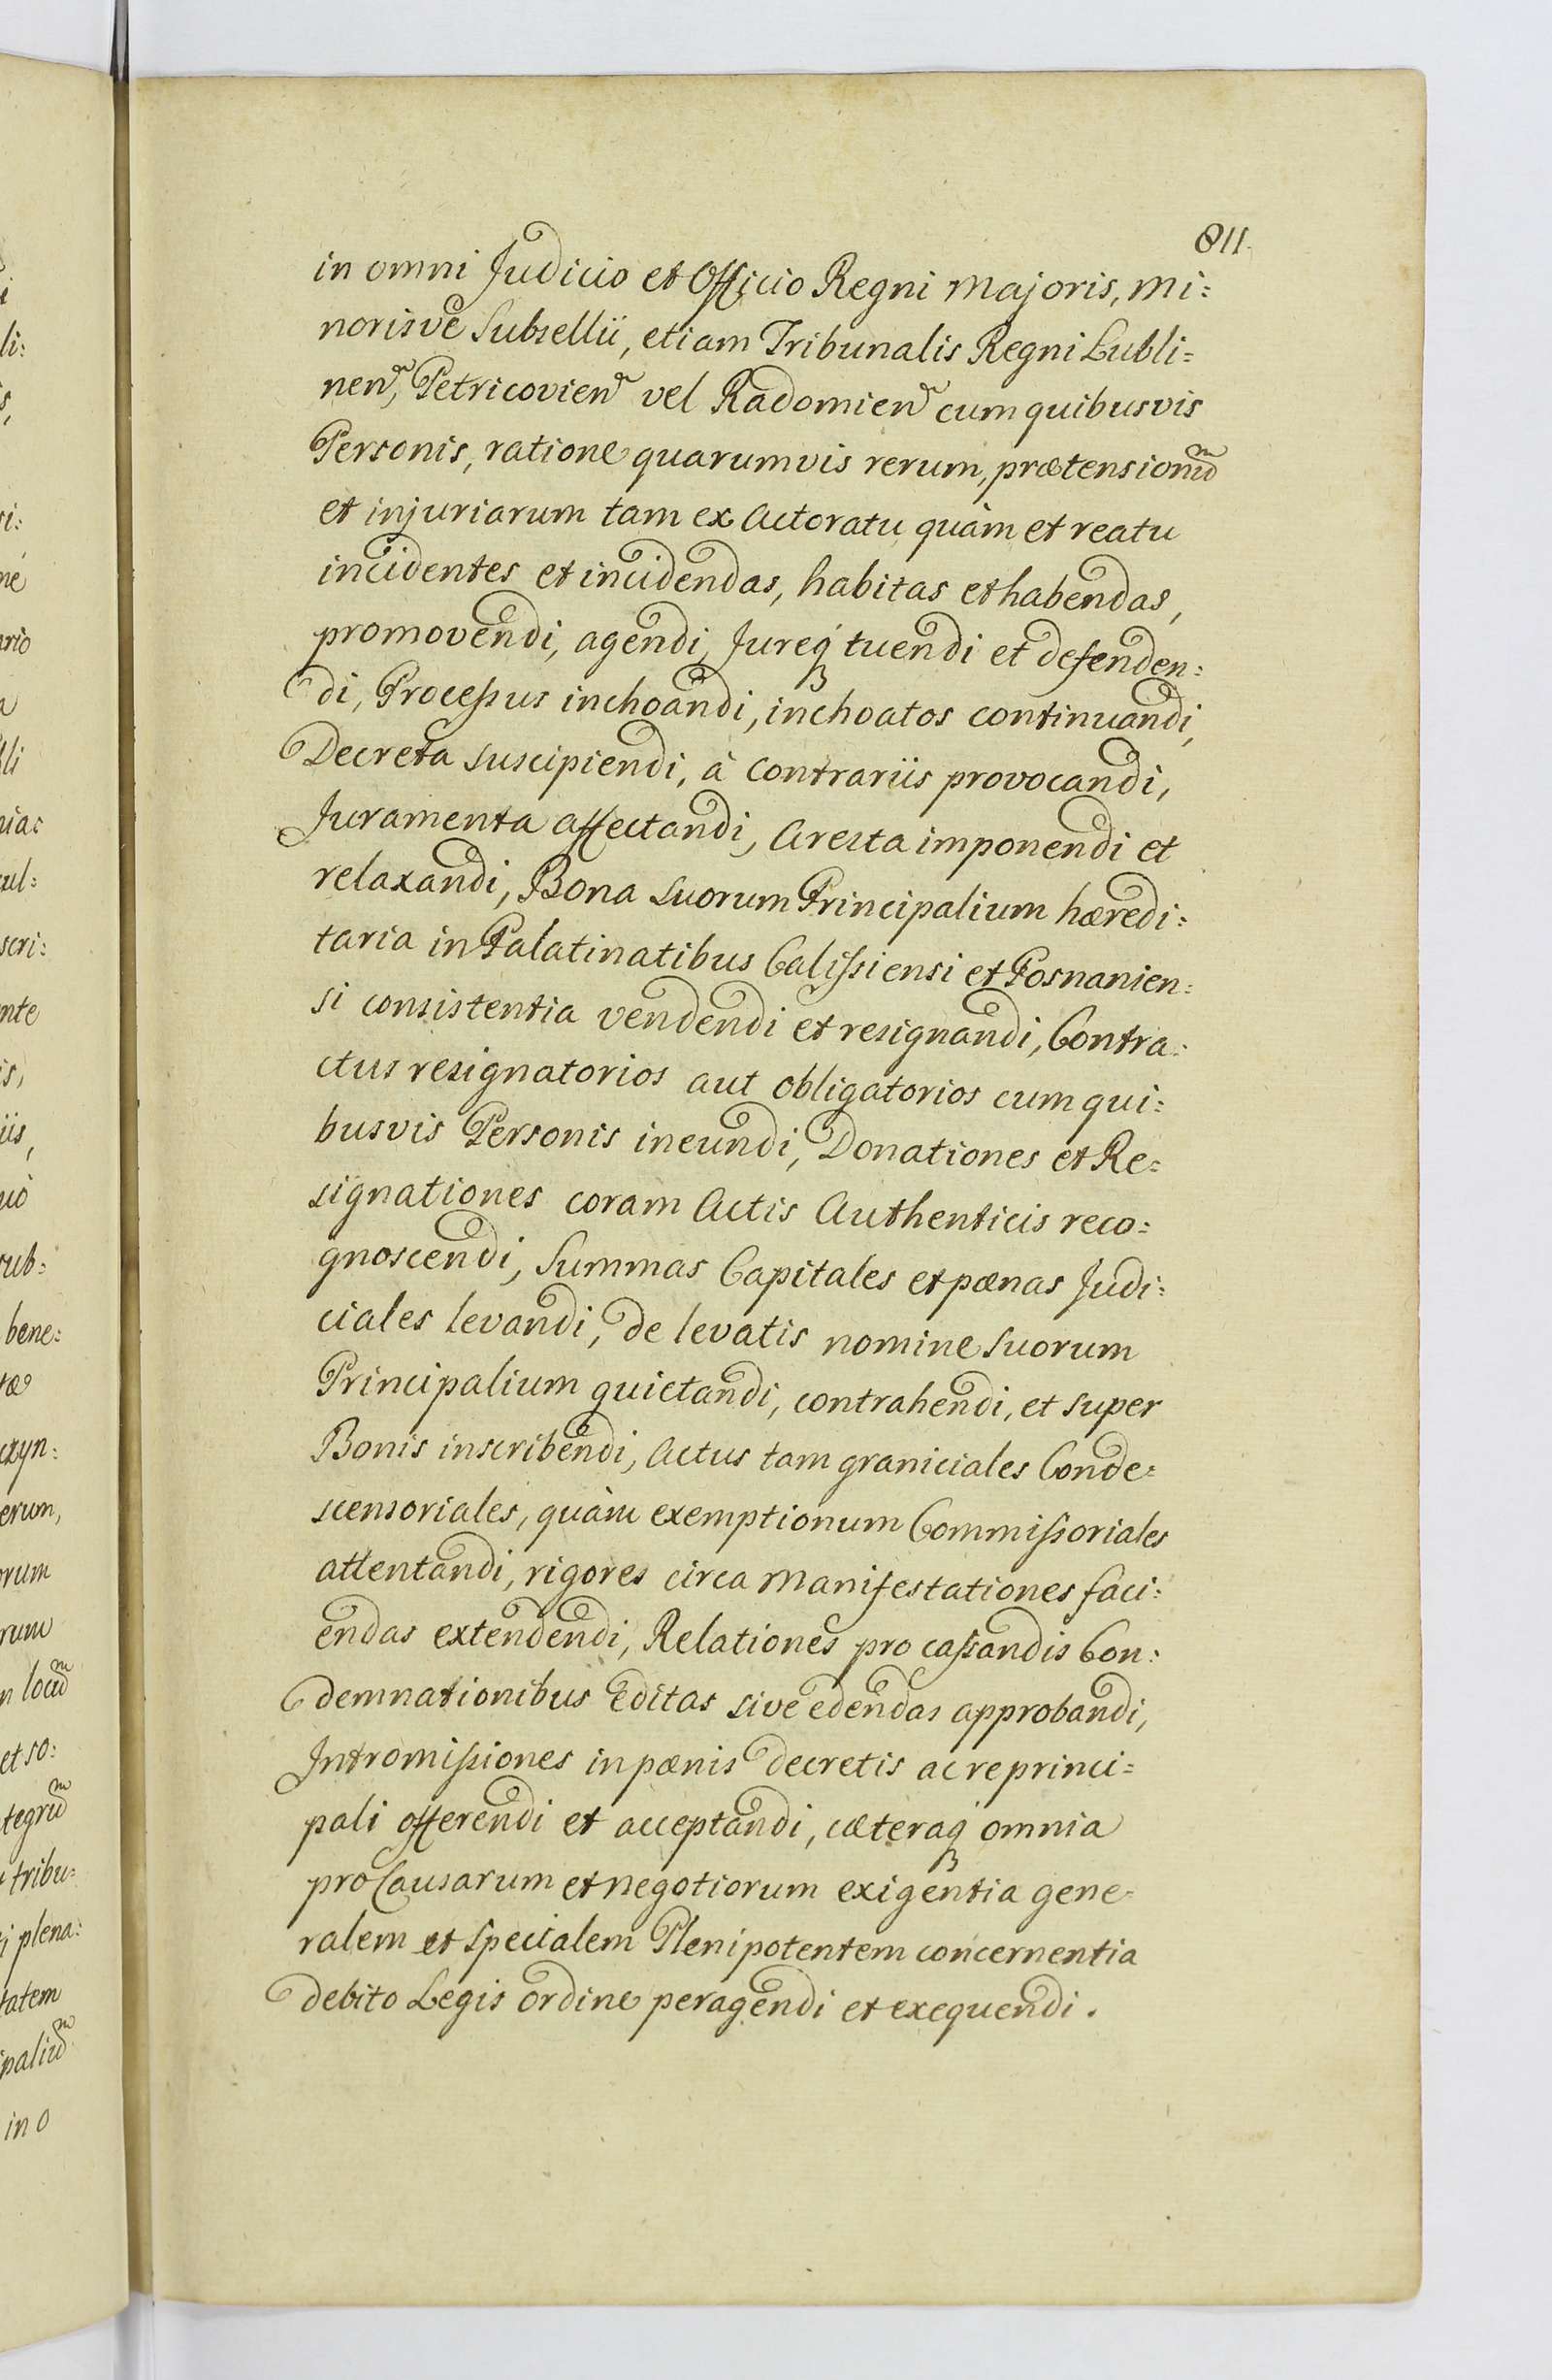 811.
in omni Judicio et Officio Regni Majoris, mi=
norisve Subsellii, etiam Tribunalis Regni Lubli=
nen̄, Petricovien̄ vel Radomien̄ cum quibusvis
Personis, ratione quarumvis rerum, prætensionũ
et injuriarum tam ex Actoratu quàm et reatu
incidentes et incidendas, habitas et habendas,
promovendi, agendi, Jureq́ tuendi et defenden=
di, Processus inchoandi, inchoatos continuandi,
Decreta suscipiendi, à Contrariis provocandi,
Juramenta affectandi, Aresta imponendi et
relaxandi, Bona Suorum Principalium hæredi=
taria in Palatinatibus Calissiensi et Posnanien=
si consistentia vendendi et resignandi, Contra=
ctus resignatorios aut obligatorios cum qui=
busvis Personis ineundi, Donationes et Re=
signationes coram Actis Authenticis reco=
gnoscendi, Summas Capitales et pænas Judi=
ciales levandi, de levatis nomine Suorum
Principalium quietandi, contrahendi, et super
Bonis inscribendi, Actus tam graniciales Conde=
scensoriales, quàm exemptionum Commissoriales
attentandi, rigores circa Manifestationes faci=
endas extendendi, Relationes pro cassandis Con=
demnationibus Editas sive edendas approbandi,
Intromissiones in pænis decretis ac re princi=
pali offerendi et acceptandi, cæteraq́ omnia
pro Causarum et negotiorum exigentia gene=
ralem et Specialem Plenipotentem concernentia
debito Legis ordine peragendi et exequendi.